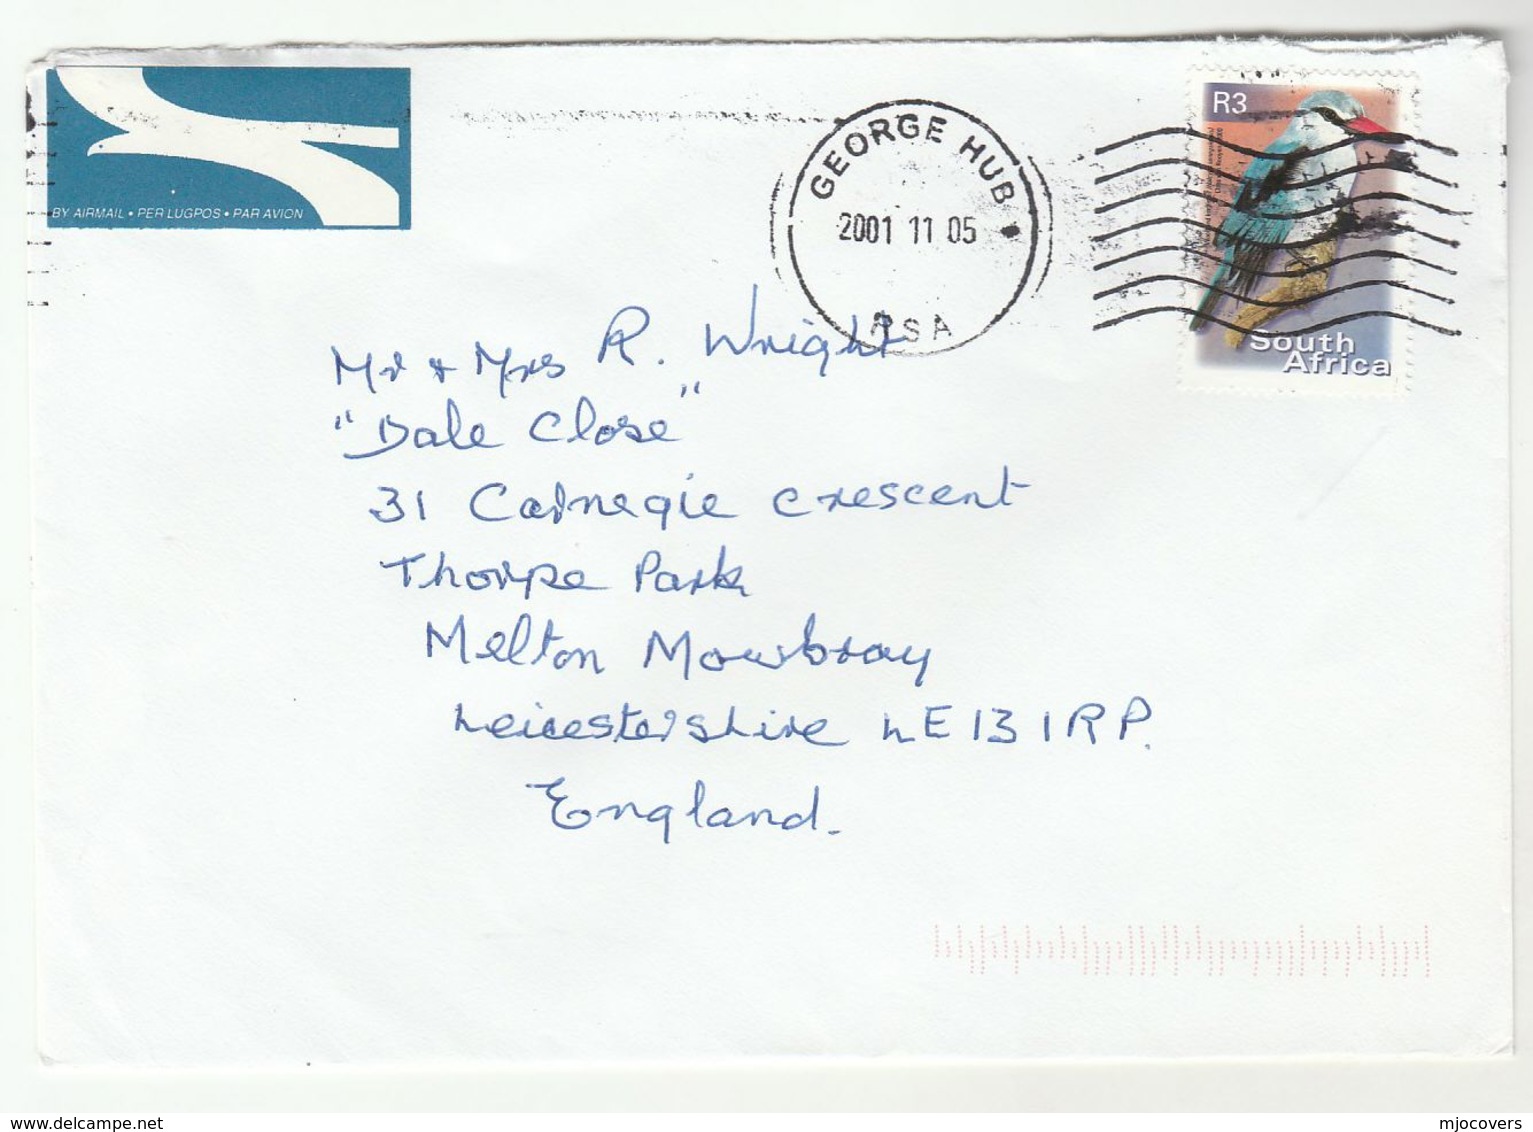 BY AIRMAIL • PER LUGPOS • PAR AVION
GEORGE HUB
2001 11 05
RSA
R3
South
Africa
Mr & Mrs R. Wright
"Dale Close"
31 Carnegie Crescent
Thorpe Park
Melton Mowbray
Leicestershire LE13 1RP.
England.
delcampe.net
mjocovers